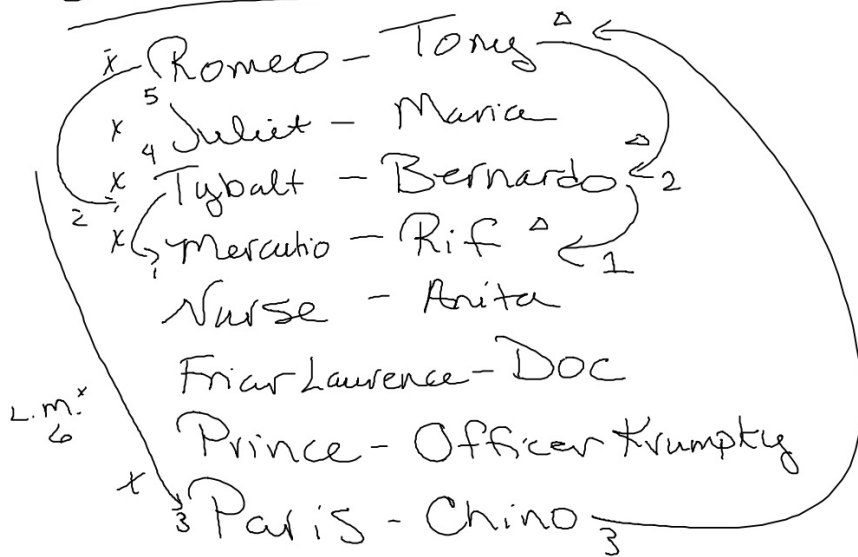 x Romeo - Tony △
5
x Juliet - Maria
4
x Tybalt - Bernardo △ 2
2
x Mercutio - Rif △ 1
1
Nurse - Anita
Friar Laurence - Doc
L.M. x
6
Prince - Officer Krumpky
x 3 Paris - Chino 3